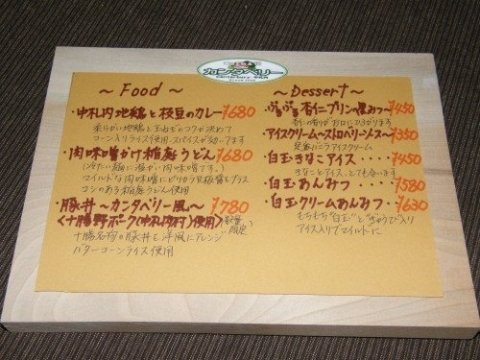 カンタベリー
～Food～
・中札内地鶏と枝豆のカレー ¥680
柔らかい地鶏と玉ねぎのコクが決めて
コーン入りライス使用 スパイスが
・肉味噌かけ稲庭うどん ¥680
マイルドな肉味噌にピリ辛
コシのある稲庭うどん使用
・豚丼～カンタベリー風～ ¥780
〈十勝野ポーク(中札内村)使用〉数量限定
十勝名物の豚丼を洋風にアレンジ
バターコーンライス使用
～Dessert～
・ぷるぷる杏仁プリン～黒みつ～ ¥450
杏仁の香りがお口にひろがります
・アイスクリーム～ストロベリーソース～ ¥350
定番バニラアイスクリーム
・白玉きなこアイス・・・・ ¥450
きなことアイス、とても合います
・白玉あんみつ ¥580
・白玉クリームあんみつ ¥630
もちもち"白玉"と"ぎゅうひ"入り
アイス入りでマイルドに